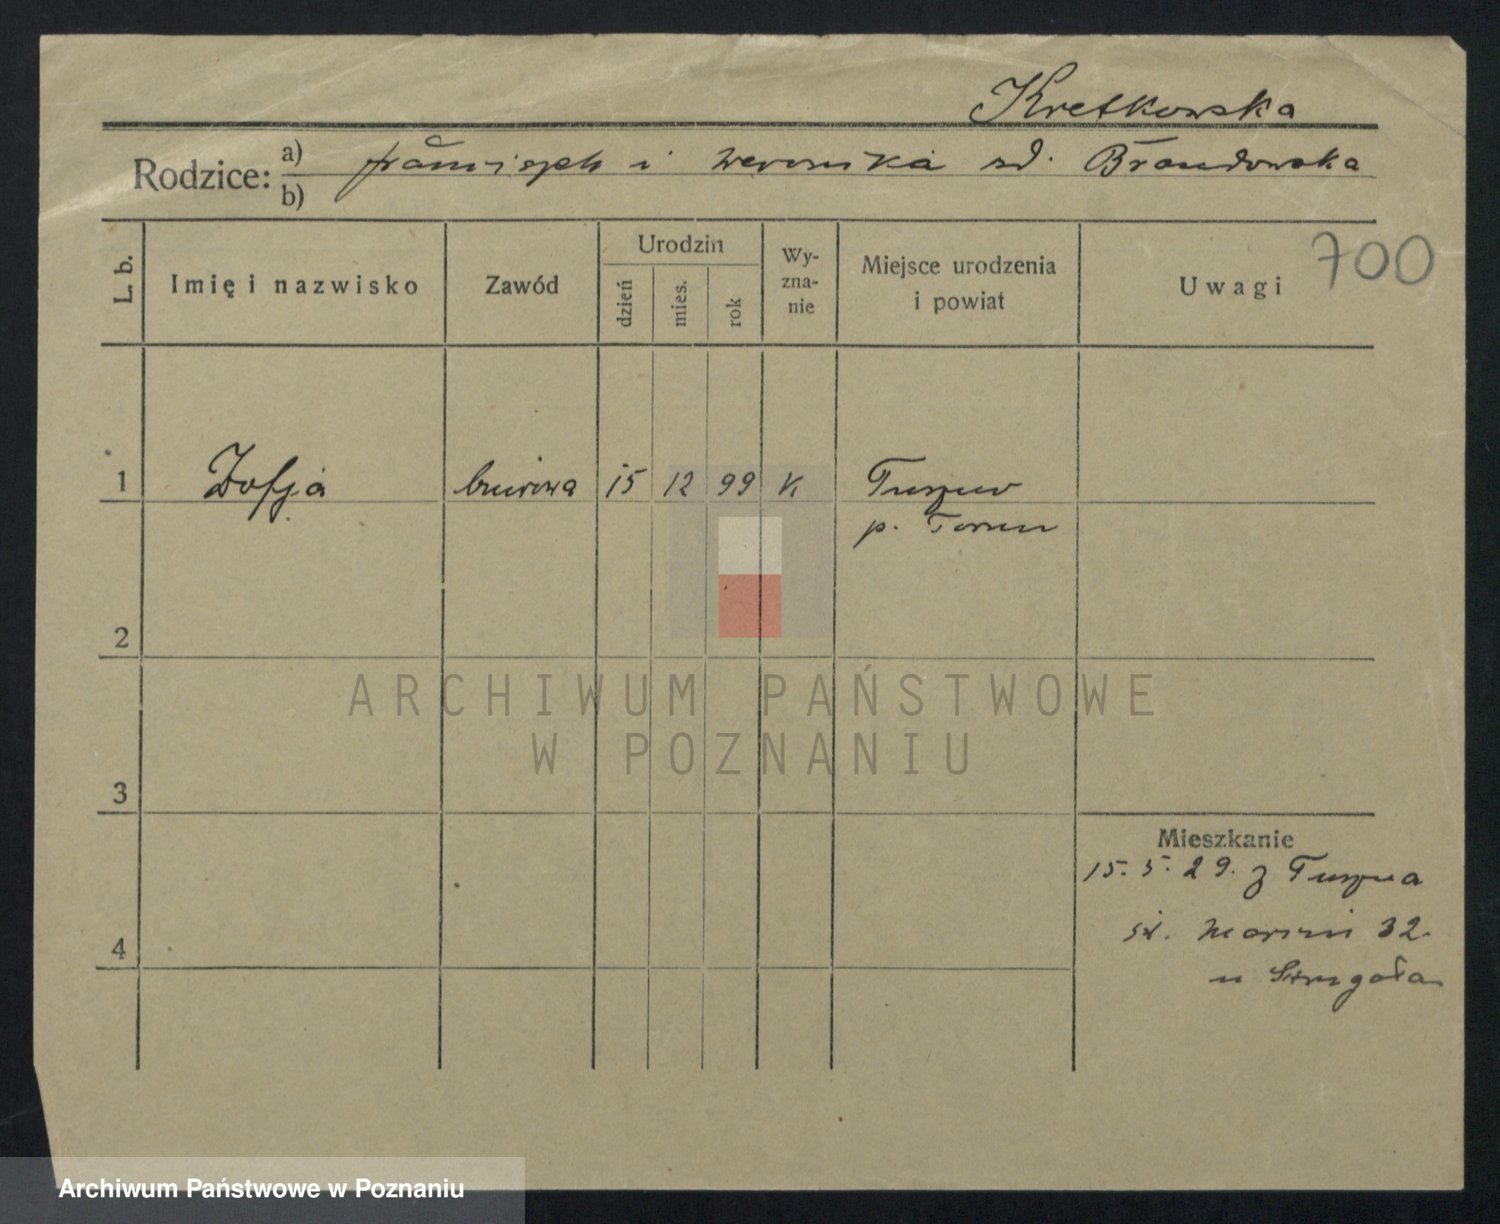 Kretkowska
Rodzice: a) franciszek i weronika zd. Brandowska
b)
L. b.
Imię i nazwisko
Zawód
Urodzin
dzień
mies.
rok
Wy-
zna-
nie
Miejsce urodzenia
i powiat
Uwagi
700
1 Zofja biurowa 15 12 99 K
p. Torun
2
ARCHIWUM PAŃSTWOWE
W POZNANIU
3
Mieszkanie
15. 5. 29. z
św. Marcin 32.
u
4
Archiwum Państwowe w Poznaniu